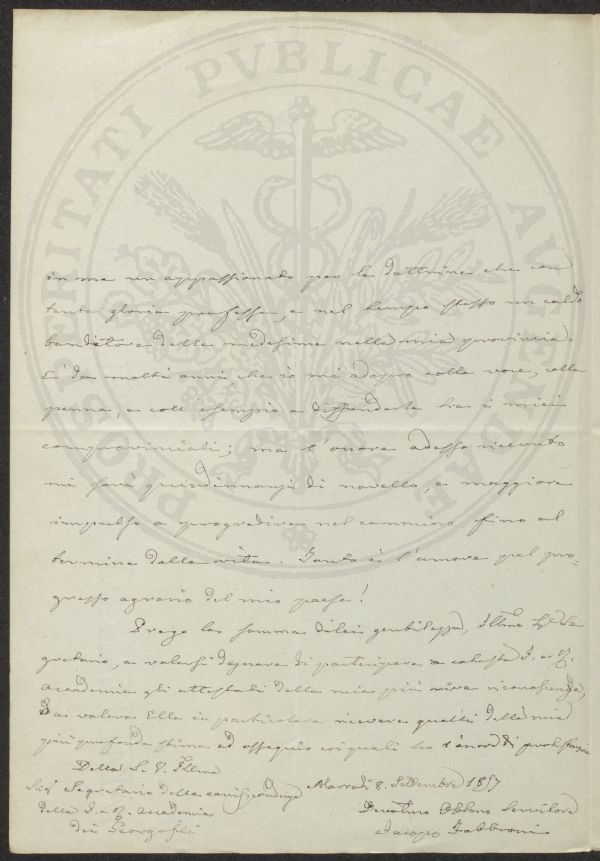 PROSPERITATI PVBLICAE AVGENDAE
in me un appassionato per le dottrine che con
tanta gloria professa, e nel tempo stesso un caldo
banditore delle medesime nella mia provincia.
È da molti anni, che io mi adopro colla voce, colla
penna, e coll'esempio a diffonderle tra i miei
comprovinciali; ma l'onore adesso ricevuto
mi sarà quindinnanzi di novello, e maggiore
impulso a progredire nel cammino fino al
termine della vita. Tanto è l'amore pel pro-
gresso agrario del mio paese!
Prego la somma di lei gentilezza, Illmo Sig. Se
gretario, a volersi degnare di partecipare a codesta I. e R.
Accademia gli attestati della mia più viva riconoscenza,
e a volere Ella in particolare ricevere quelli della mia
più profonda stima ed ossequio coi quali ho l'onore di protestarmi
Della S. V. Illma
Sig. Segretario delle corrispondenze
Marradi 8. Settembre 1857
della I. e R. Accademia
Devotmo Obblmo Servitore
dei Georgofili
Jacopo Fabbroni